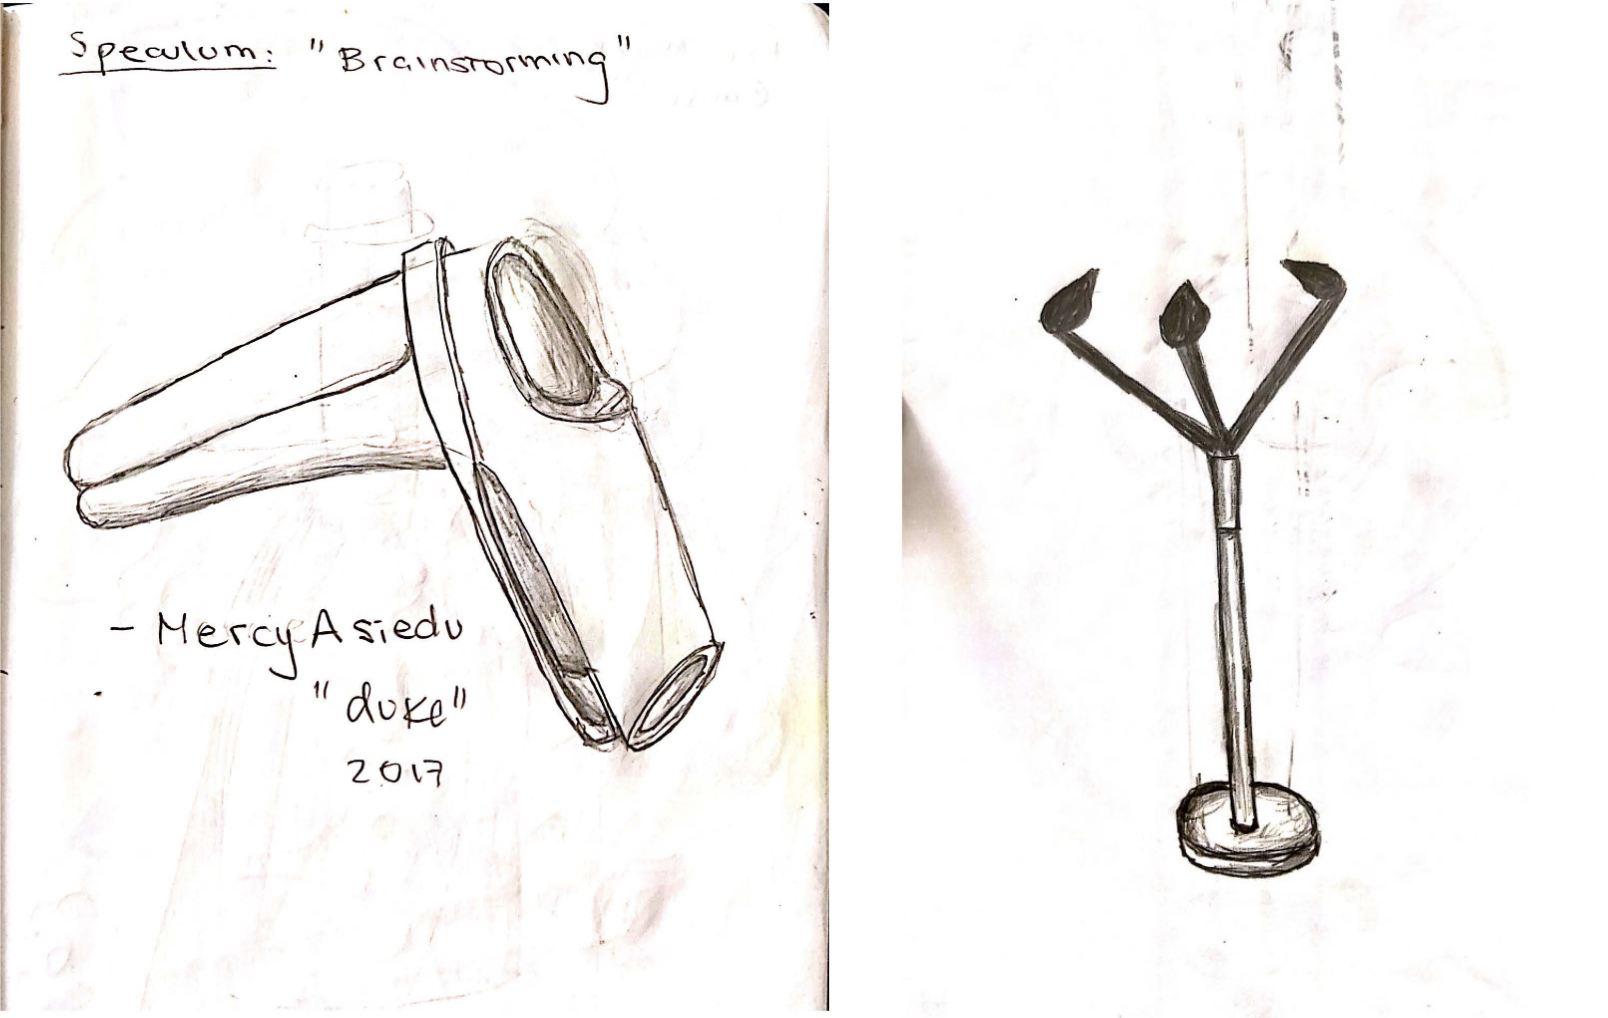 Speculum: "Brainstorming"
- Mercy Asiedu
"duke"
2017